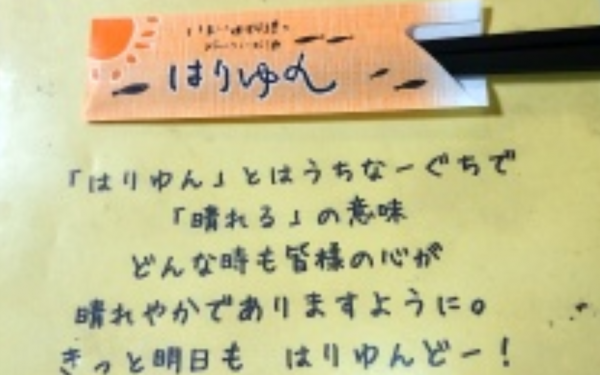 はりゆん
「はりゆん」とはうちなーぐちで
「晴れる」の意味
どんな時も皆様の心が
晴れやかでありますように。
きっと明日も はりゆんどー!